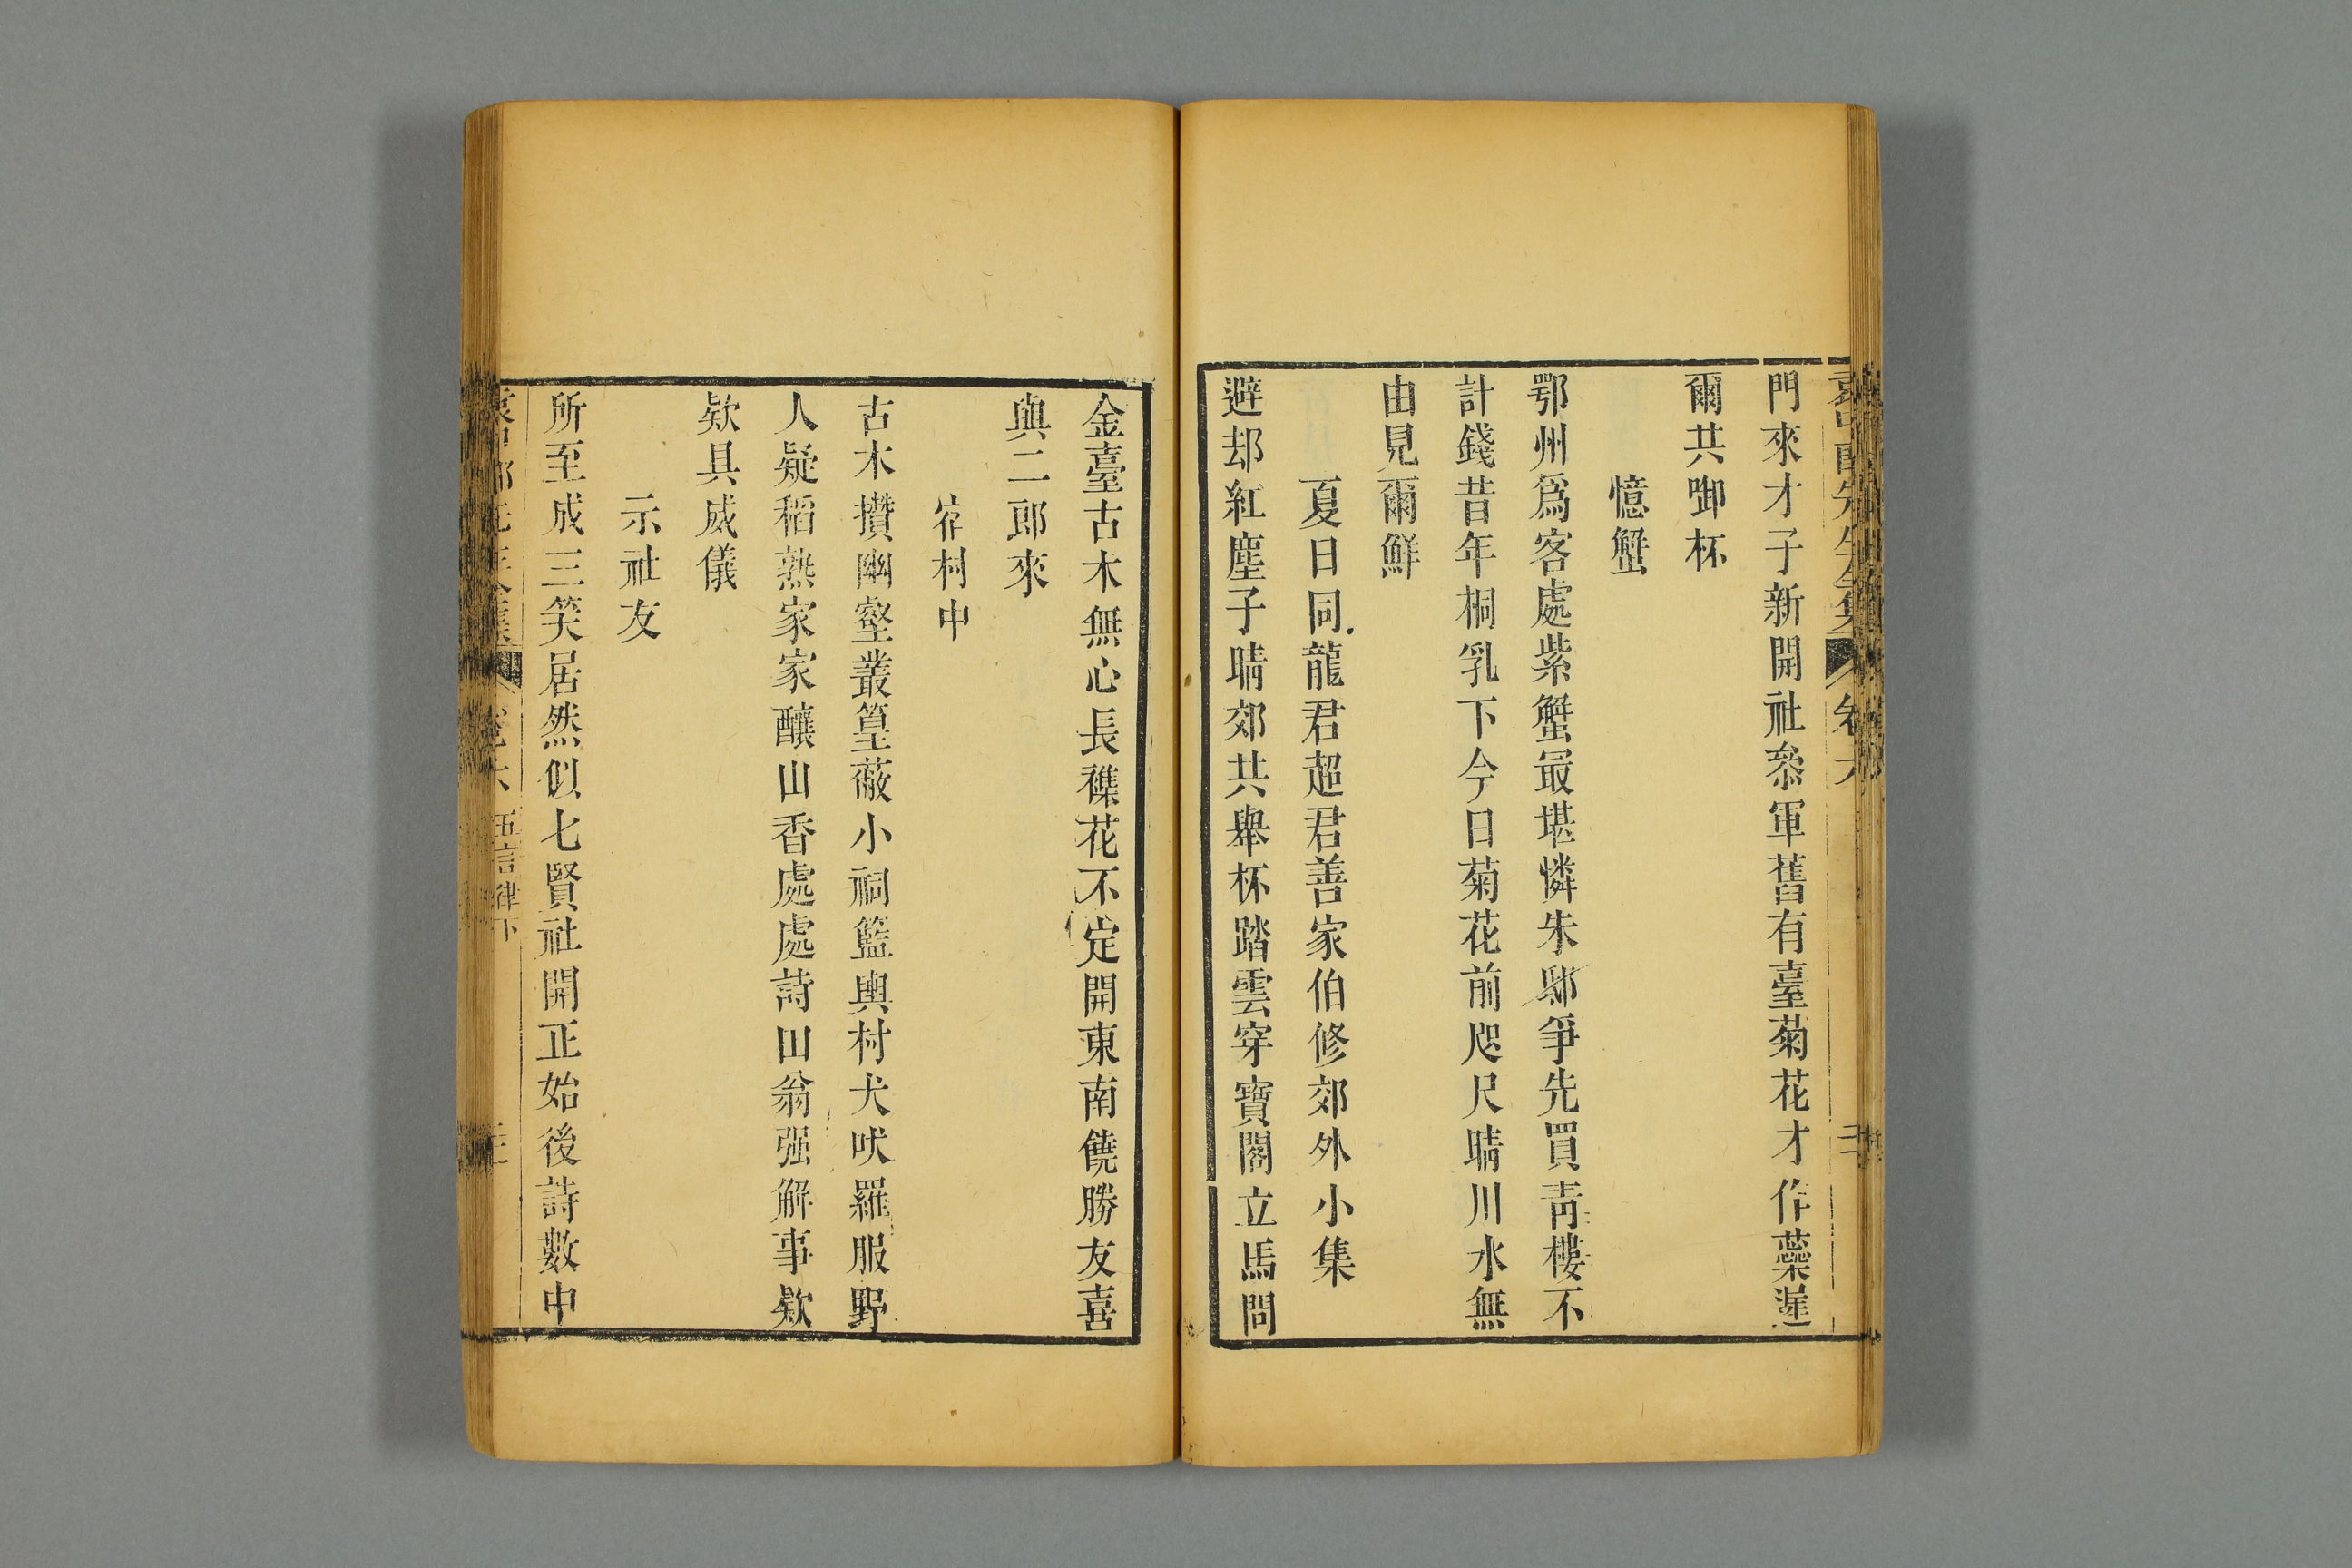 門來才子新開社叅軍舊有臺菊花才作蘂遲
爾共啣杯
憶蟹
鄂州爲客處紫蟹最堪憐朱邸爭先買靑樓不
計錢昔年桐乳下今日菊花前咫尺晴川水無
由見爾鮮
夏日同龍君超君善家伯修郊外小集
避却紅塵子晴郊共舉杯踏雲穿寶閣立馬問
金臺古木無心長襍花不定開東南饒勝友喜
與二郎來
宿村中
古木攢幽壑叢篁蔽小祠籃輿村犬吠羅服野
人疑稻熟家家釀山香處處詩田翁强解事欵
欵具威儀
示社友
所至成三笑居然似七賢社開正始後詩數中
卷六 五言律下